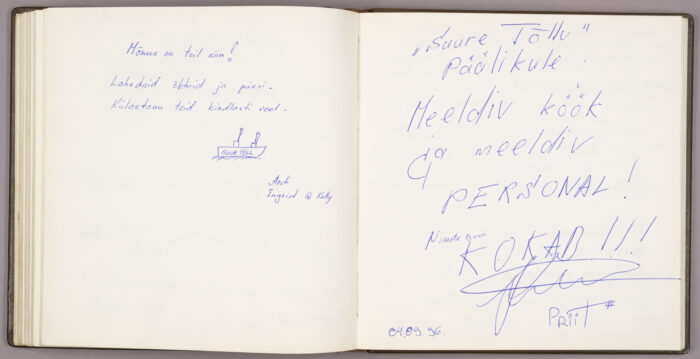 Mõnus on teil siin!
Lahedaid õhtuid ja päevi.
Külastame teid kindlasti veel.
SUURE TÕLL
Ingrid & Kelly
„Suure Tõllu"
Päälikule
Meeldiv köök
ja meeldiv
PERSONAL!
KOKAB!!!
PRIIT
04.09.96.